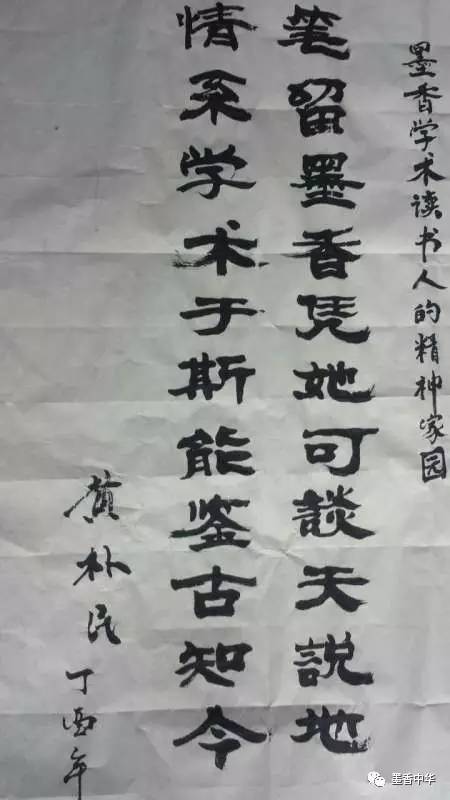 墨香学术读书人的精神家园
笔留墨香凭她可談天說地
情系学术于斯能鉴古知今
黄朴民丁酉年
墨香中华